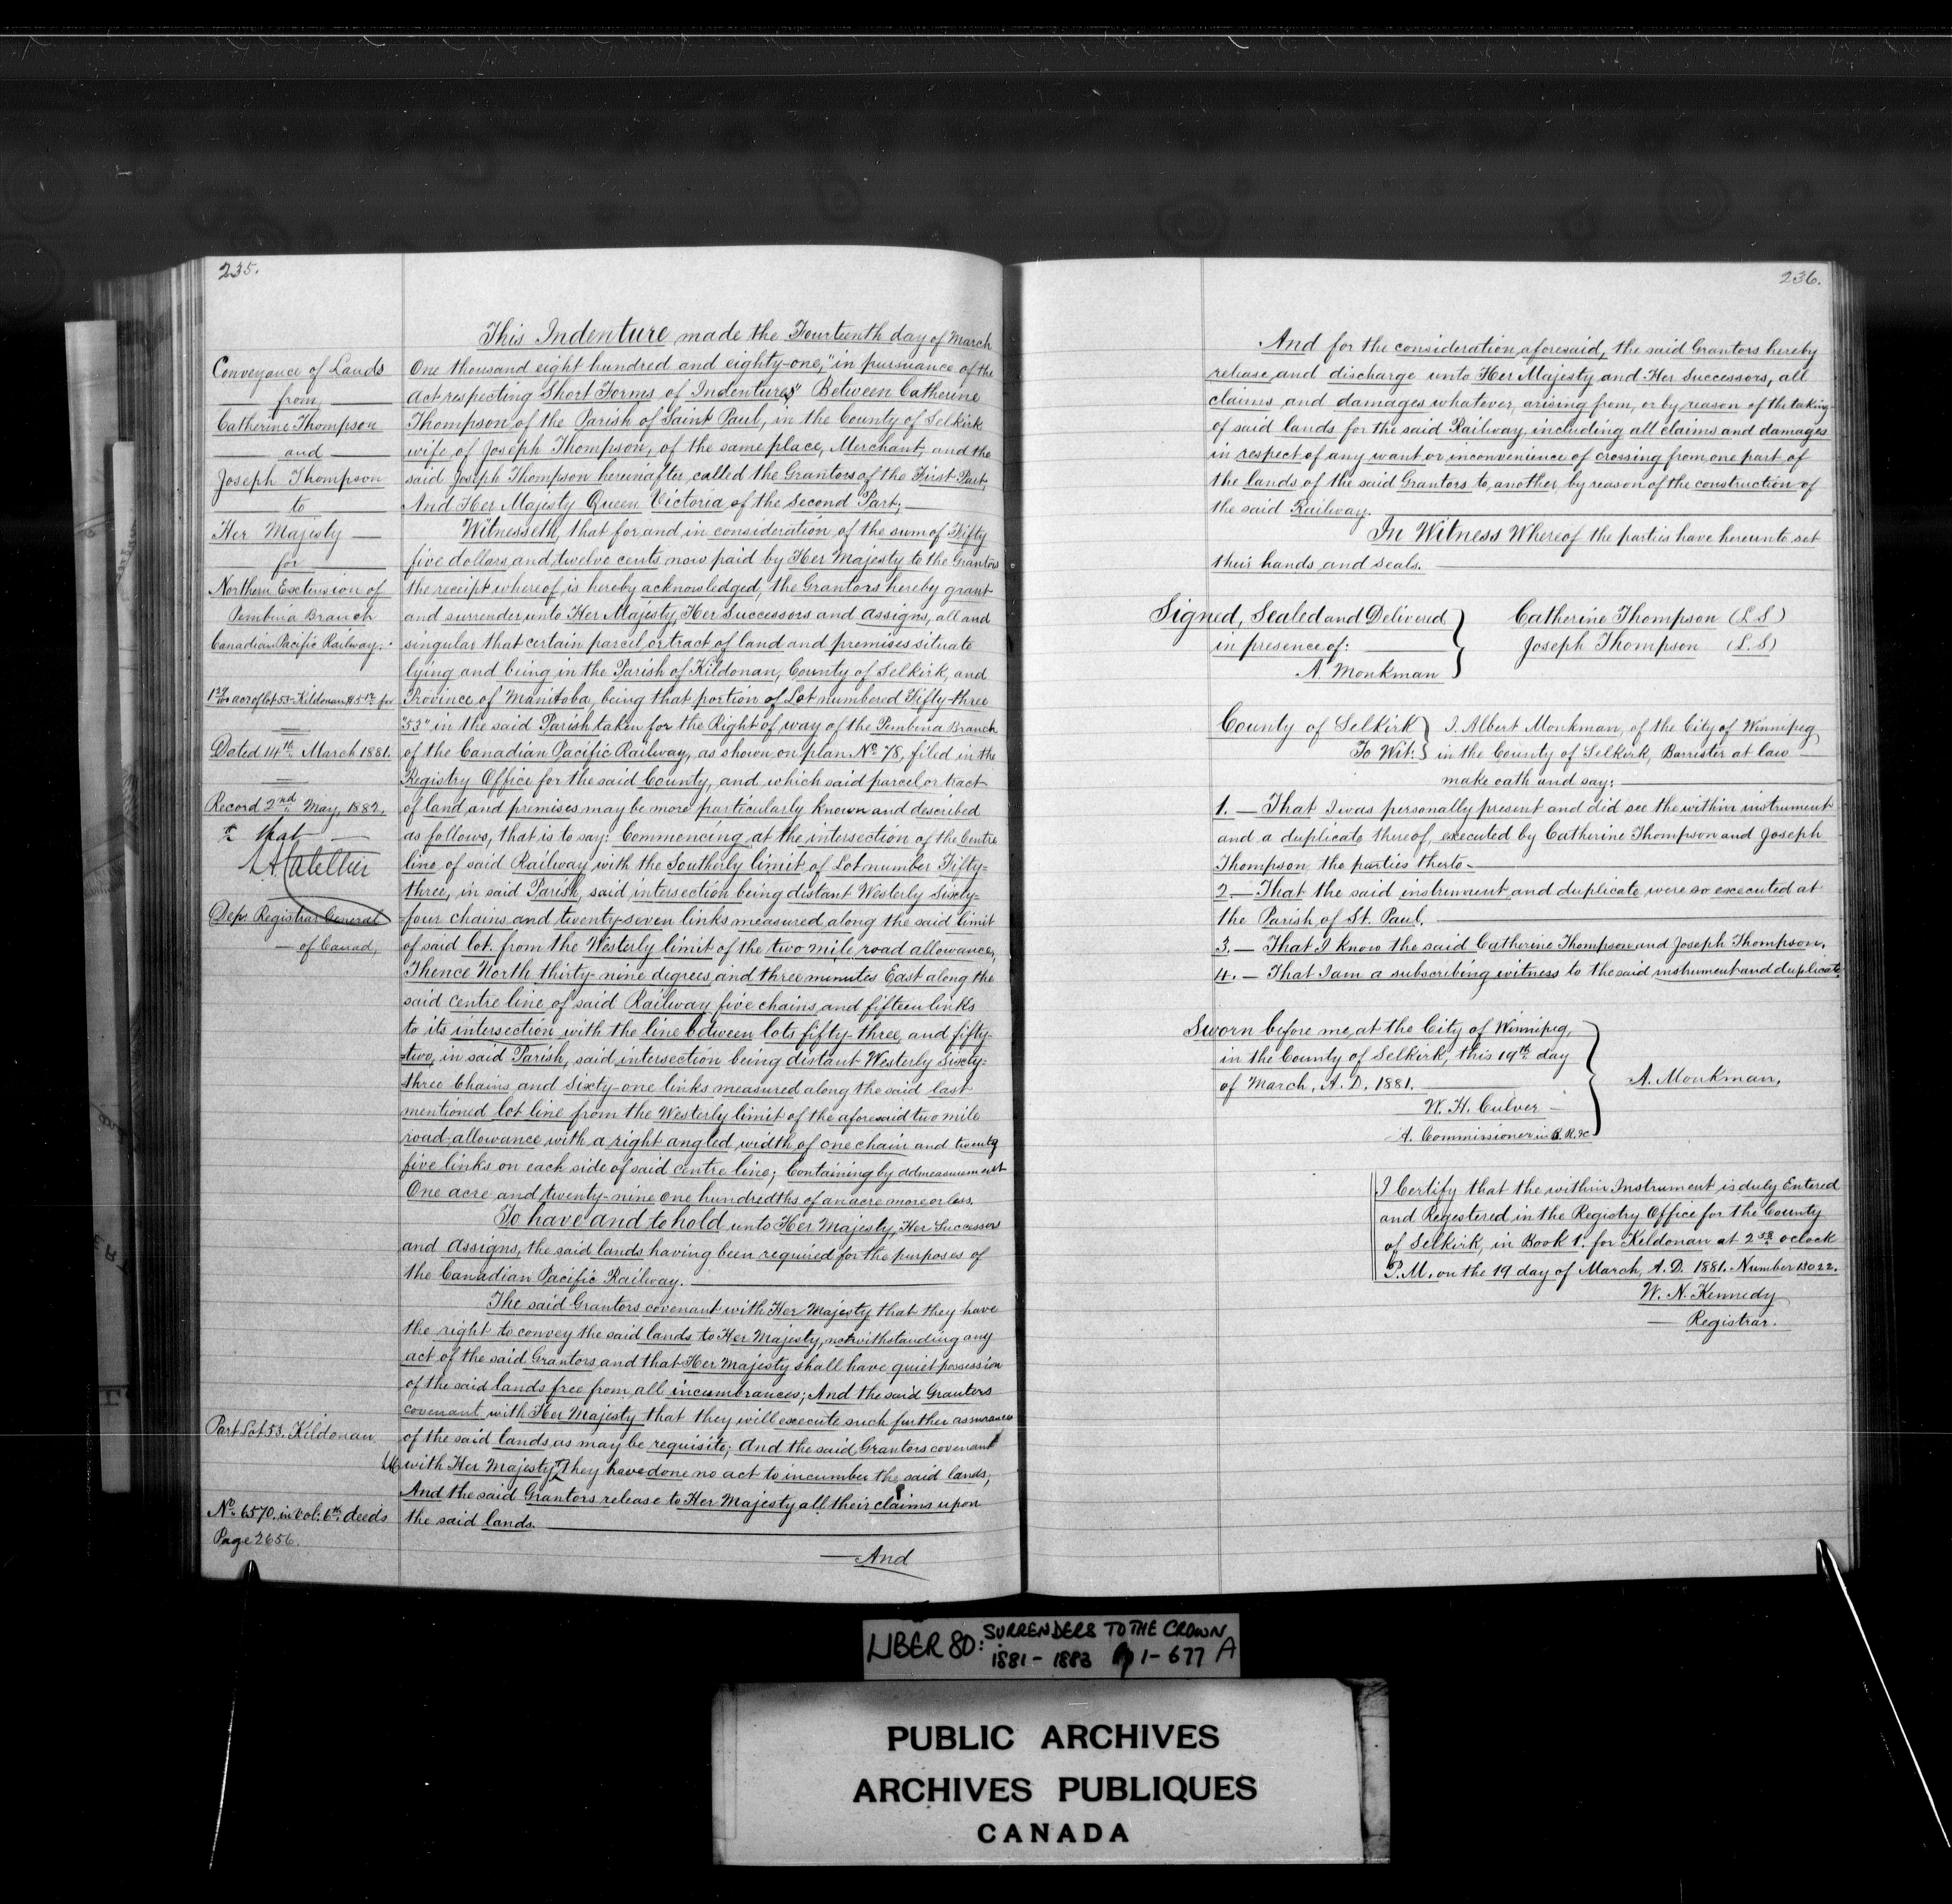 235.
Conveyance of Lands
from
Catherine Thompson
and
Joseph Thompson
to
Her Majesty
for
Northern Extension of
Pembina Branch
Canadian Pacific Railway.
acre of Lot 53 Kildonan for
Dated 14th March 1881.
Record 2nd May, 1882,
Dep. Registrar General
of Canad,
Part Lot 53. Kildonan
No. 6570. in Vol: 6th deeds
Page 2656.
This Indenture made the Fourteenth day of March
One thousand eight hundred and eighty-one, "in pursuance of the
Act respecting Short Forms of Indentures" Between Catherine
Thompson of the Parish of Saint Paul, in the County of Selkirk
wife of Joseph Thompson, of the same place, Merchant, and the
said Joseph Thompson hereinafter called the Grantors of the First Part,
And Her Majesty Queen Victoria of the Second Part;
Witnesseth, that for and in consideration of the sum of Fifty
five dollars and twelve cents now paid by Her Majesty to the Grantors
the receipt whereof is hereby acknowledged, the Grantors hereby grant
and surrender unto Her Majesty, Her Successors and Assigns, all and
singular that certain parcel or tract of land and premises situate
lying and being in the Parish of Kildonan, County of Selkirk, and
Province of Manitoba, being that portion of Lot numbered Fifty-three
"53" in the said Parish taken for the Right of way of the Pembina Branch
of the Canadian Pacific Railway, as shown on plan No. 78, filed in the
Registry Office for the said County, and which said parcel or tract
of land and premises may be more particularly known and described
as follows, that is to say: Commencing at the intersection of the Centre
line of said Railway with the Southerly limit of Lot number Fifty-
three, in said Parish, said intersection being distant Westerly Sixty-
four chains and twenty-seven links measured along the said limit
of said lot from the Westerly limit of the two mile road allowance,
Thence North thirty-nine degrees and three minutes East along the
said centre line of said Railway five chains and fifteen links
to its intersection with the line between lots fifty-three and fifty-
two, in said Parish, said intersection being distant Westerly Sixty-
three Chains and Sixty-one links measured along the said last
mentioned lot line from the Westerly limit of the aforesaid two mile
road allowance with a right angled width of one chain and twenty
five links on each side of said centre line; Containing by admeasurement
One acre and twenty-nine one hundredths of an acre more or less.
To have and to hold unto Her Majesty, Her Successors
and Assigns, the said lands having been required for the purposes of
the Canadian Pacific Railway.
The said Grantors covenant with Her Majesty that they have
the right to convey the said lands to Her Majesty, notwithstanding any
act of the said Grantors and that Her Majesty shall have quiet possession
of the said lands free from all incumbrances; And the said Grantors
covenant with Her Majesty that they will execute such further assurances
of the said lands as may be requisite; And the said Grantors covenant
with Her Majesty They have done no act to incumber the said lands;
And the said Grantors release to Her Majesty all their claims upon
the said lands.
And
236.
And for the consideration aforesaid, the said Grantors hereby
release and discharge unto Her Majesty and Her Successors, all
claims and damages whatever, arising from, or by reason of the taking
of said lands for the said Railway, including all claims and damages
in respect of any want or inconvenience of crossing from one part of
the lands of the said Grantors to another, by reason of the construction of
the said Railway.
In Witness Whereof the parties have hereunto set
their hands and seals.
Signed, Sealed and Delivered } Catherine Thompson (L.S)
in presence of: Joseph Thompson (L.S)
A. Monkman
County of Selkirk } I. Albert Monkman, of the City of Winnipeg
To Wit: in the County of Selkirk, Barrister at law
make oath and say:
1. — That I was personally present and did see the within instrument
and a duplicate thereof, executed by Catherine Thompson and Joseph
Thompson the parties therto.
2 — That the said instrument and duplicate were so executed at
the Parish of St. Paul.
3. — That I know the said Catherine Thompson and Joseph Thompson.
4. — That I am a subscribing witness to the said instrument and duplicate.
Sworn before me, at the City of Winnipeg,
in the County of Selkirk, this 19th day
of March, A.D. 1881. A. Monkman,
W. H. Culver
A. Commissioner in B. R. &c
I Certify that the within Instrument is duly Entered
and Regestered in the Registry Office for the County
of Selkirk, in Book 1. for Kildonan at oclock
P.M. on the 19 day of March, A.D. 1881. Number 13022.
W. N. Kennedy
Registrar.
LIBER 80: SURRENDERS TO THE CROWN
1881 - 1883 1 - 677 A
PUBLIC ARCHIVES
ARCHIVES PUBLIQUES
CANADA